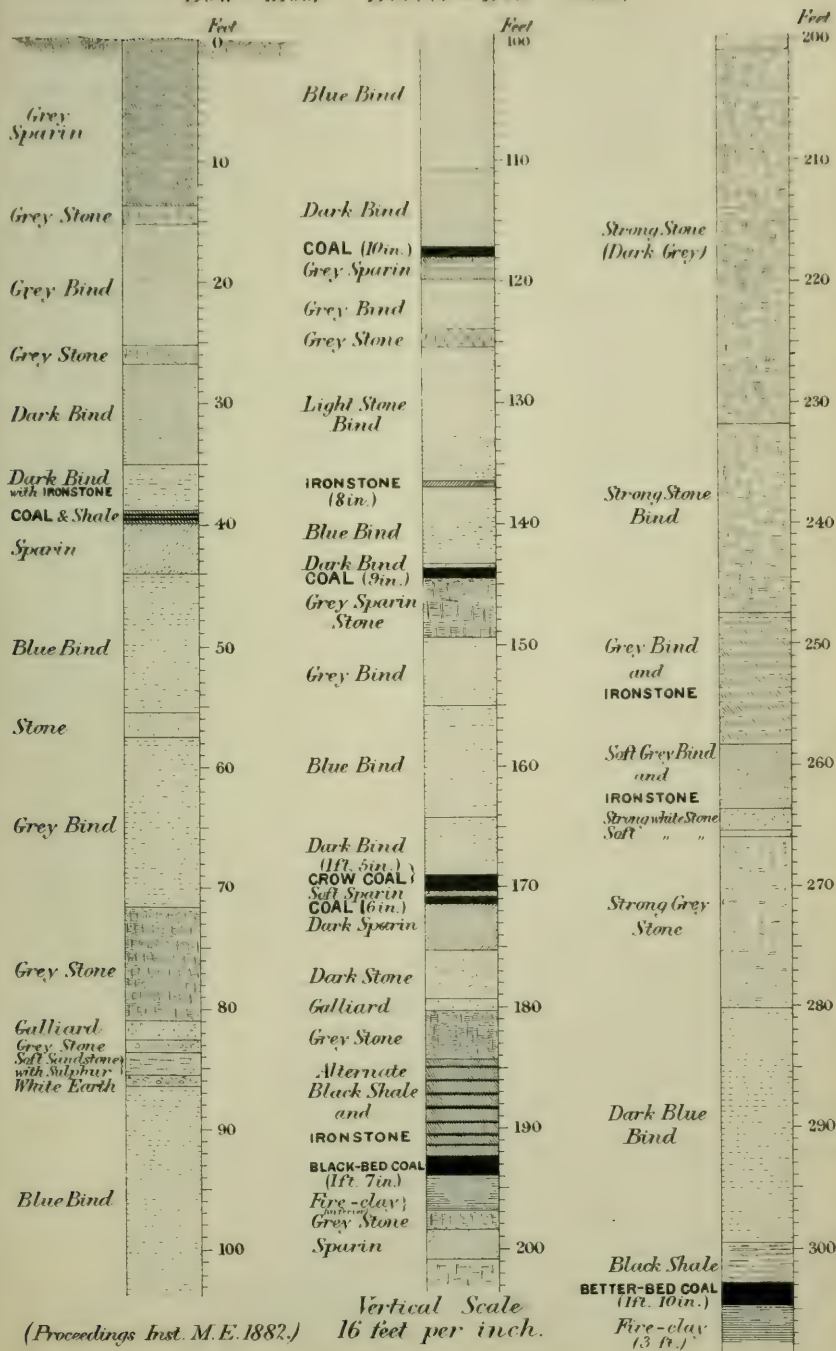 Feet
0
Grey
Sparin
10
Grey Stone
Grey Bind
20
Grey Stone
Dark Bind
30
Dark Bind
with IRONSTONE
COAL & Shale
40
Sparin
Blue Bind
50
Stone
60
Grey Bind
70
Grey Stone
80
Galliard
Grey Stone
Soft Sandstone
with Sulphur
White Earth
90
Blue Bind
100
Feet
100
Blue Bind
110
Dark Bind
COAL (10in.)
Grey Sparin
120
Grey Bind
Grey Stone
Light Stone
Bind
130
IRONSTONE
(8in.)
140
Blue Bind
Dark Bind
COAL (9in.)
Grey Sparin
Stone
150
Grey Bind
Blue Bind
160
Dark Bind
(1ft. 5in.)
CROW COAL
170
Soft Sparin
COAL (6in.)
Dark Sparin
Dark Stone
Galliard
180
Grey Stone
Alternate
Black Shale
and
IRONSTONE
190
BLACK-BED COAL
(1ft. 7in.)
Fire-clay
Grey Stone
Sparin
200
Feet
200
210
Strong Stone
(Dark Grey)
220
230
Strong Stone
Bind
240
Grey Bind
and
IRONSTONE
250
Soft Grey Bind
and
IRONSTONE
260
Strong white Stone
Soft " "
270
Strong Grey
Stone
280
Dark Blue
Bind
290
300
Black Shale
BETTER-BED COAL
(1ft. 10in.)
Fire-clay
(3 ft.)
Vertical Scale
(Proceedings Inst. M.E. 1882.) 16 feet per inch.